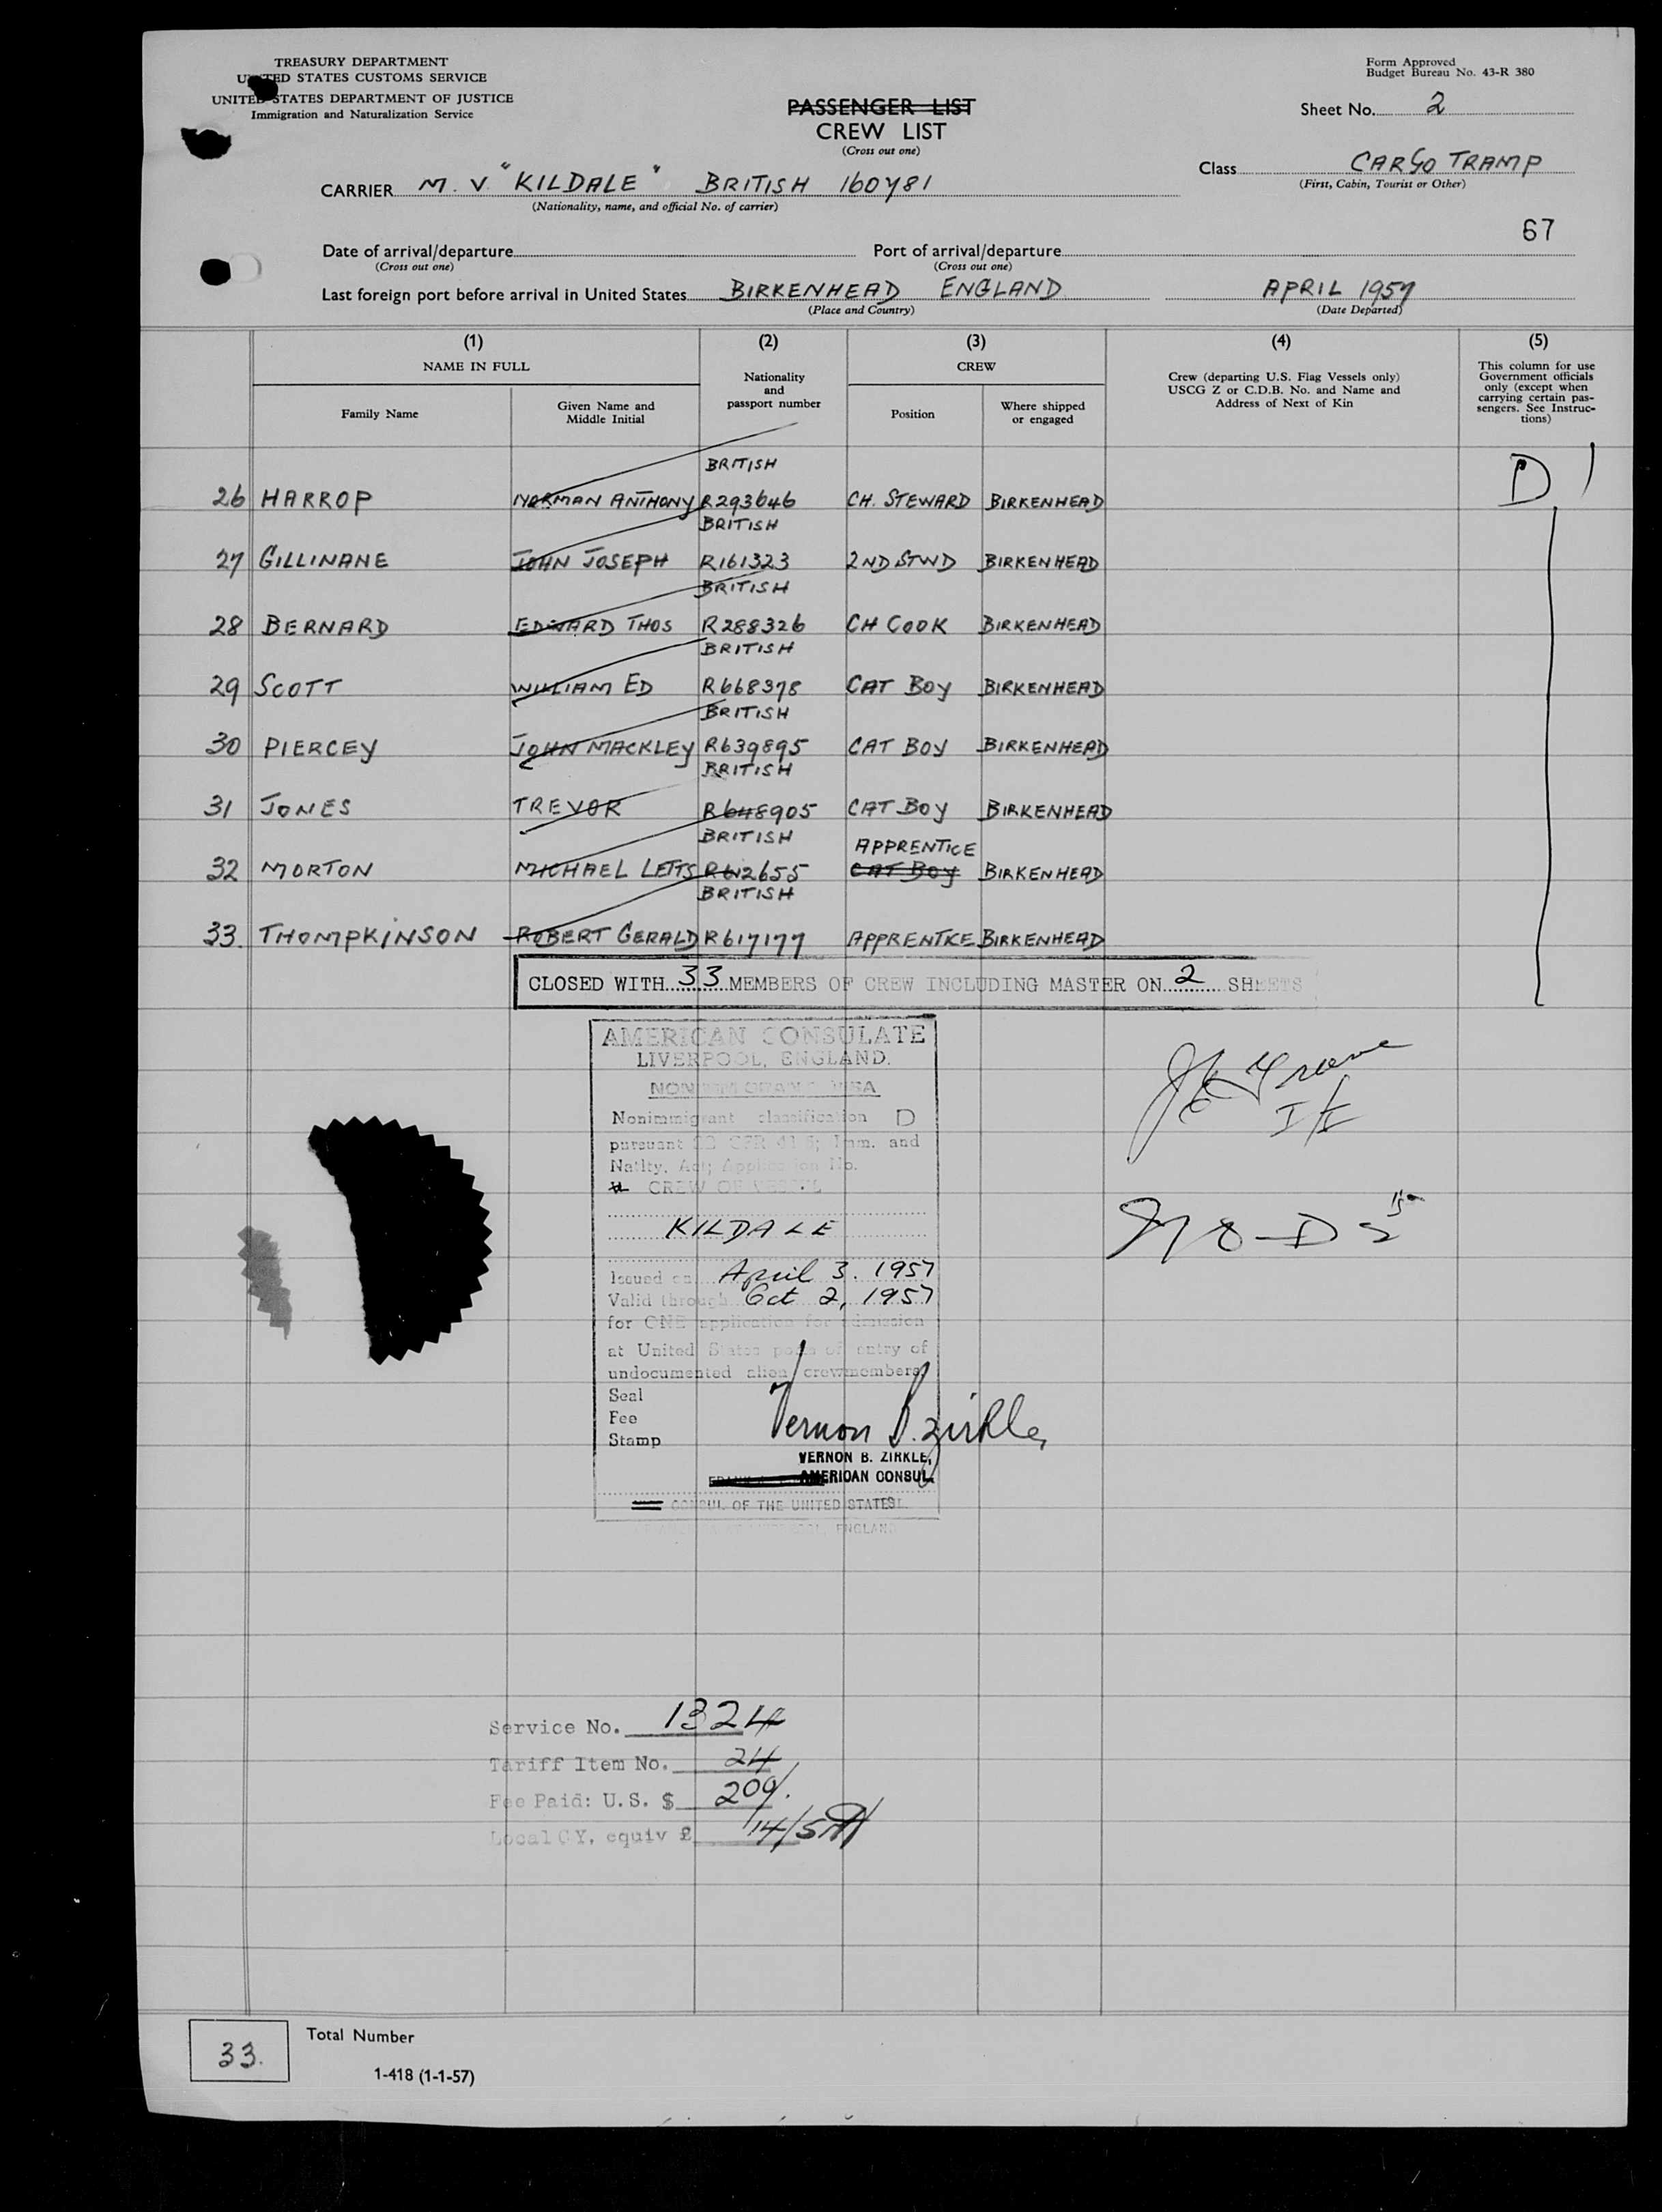 TREASURY DEPARTMENT
UNITED STATES CUSTOMS SERVICE
UNITED STATES DEPARTMENT OF JUSTICE
Immigration and Naturalization Service
Form Approved
Budget Bureau No. 43-R 380
PASSENGER LIST
CREW LIST
(Cross out one)
Sheet No. 2
Class CARGO TRAMP
(First, Cabin, Tourist or Other)
CARRIER M. V "KILDALE" BRITISH 160781
(Nationality, name, and official No. of carrier)
67
Date of arrival/departure Port of arrival/departure
(Cross out one) (Cross out one)
Last foreign port before arrival in United States BIRKENHEAD ENGLAND APRIL 1957
(Place and Country) (Date Departed)
(1) (2) (3) (4) (5)
NAME IN FULL
Family Name
Given Name and
Middle Initial
Nationality
and
passport number
CREW
Position
Where shipped
or engaged
Crew (departing U.S. Flag Vessels only)
USCG Z or C.D.B. No. and Name and
Address of Next of Kin
This column for use
Government officials
only (except when
carrying certain pas-
sengers. See Instruc-
tions)
BRITISH
26 HARROP NORMAN ANTHONY R293646 CH. STEWARD BIRKENHEAD D 1
BRITISH
27 GILLINANE JOHN JOSEPH R161323 2ND STWD BIRKENHEAD
BRITISH
28 BERNARD EDWARD THOS R288326 CH COOK BIRKENHEAD
BRITISH
29 SCOTT WILLIAM ED R668378 CAT BOY BIRKENHEAD
BRITISH
30 PIERCEY JOHN MACKLEY R639895 CAT BOY BIRKENHEAD
BRITISH
31 JONES TREVOR R648905 CAT BOY BIRKENHEAD
BRITISH APPRENTICE
32 MORTON MICHAEL LETTS R612655 CAT BOY BIRKENHEAD
BRITISH
33. THOMPKINSON ROBERT GERALD R617177 APPRENTICE BIRKENHEAD
CLOSED WITH 33 MEMBERS OF CREW INCLUDING MASTER ON 2 SHEETS
AMERICAN CONSULATE
LIVERPOOL, ENGLAND.
NONIMMIGRANT VISA
Nonimmigrant classification D
pursuant 22 CFR 41 5; Imm. and
Natlty. Act; Application No.
CREW OF VESSEL
KILDALE
Issued on April 3. 1957
Valid through Oct 2, 1957
for ONE application for admission
at United States ports of entry of
undocumented alien crewmembers.
Seal
Fee
Stamp
Vernon B. Zirkle
VERNON B. ZIRKLE,
AMERICAN CONSUL
CONSUL OF THE UNITED STATES
ENGLAND
Service No. 1324
Tariff Item No. 24
Fee Paid: U.S. $ 209.
Local CY, equiv £ 14/5
33. Total Number
1-418 (1-1-57)